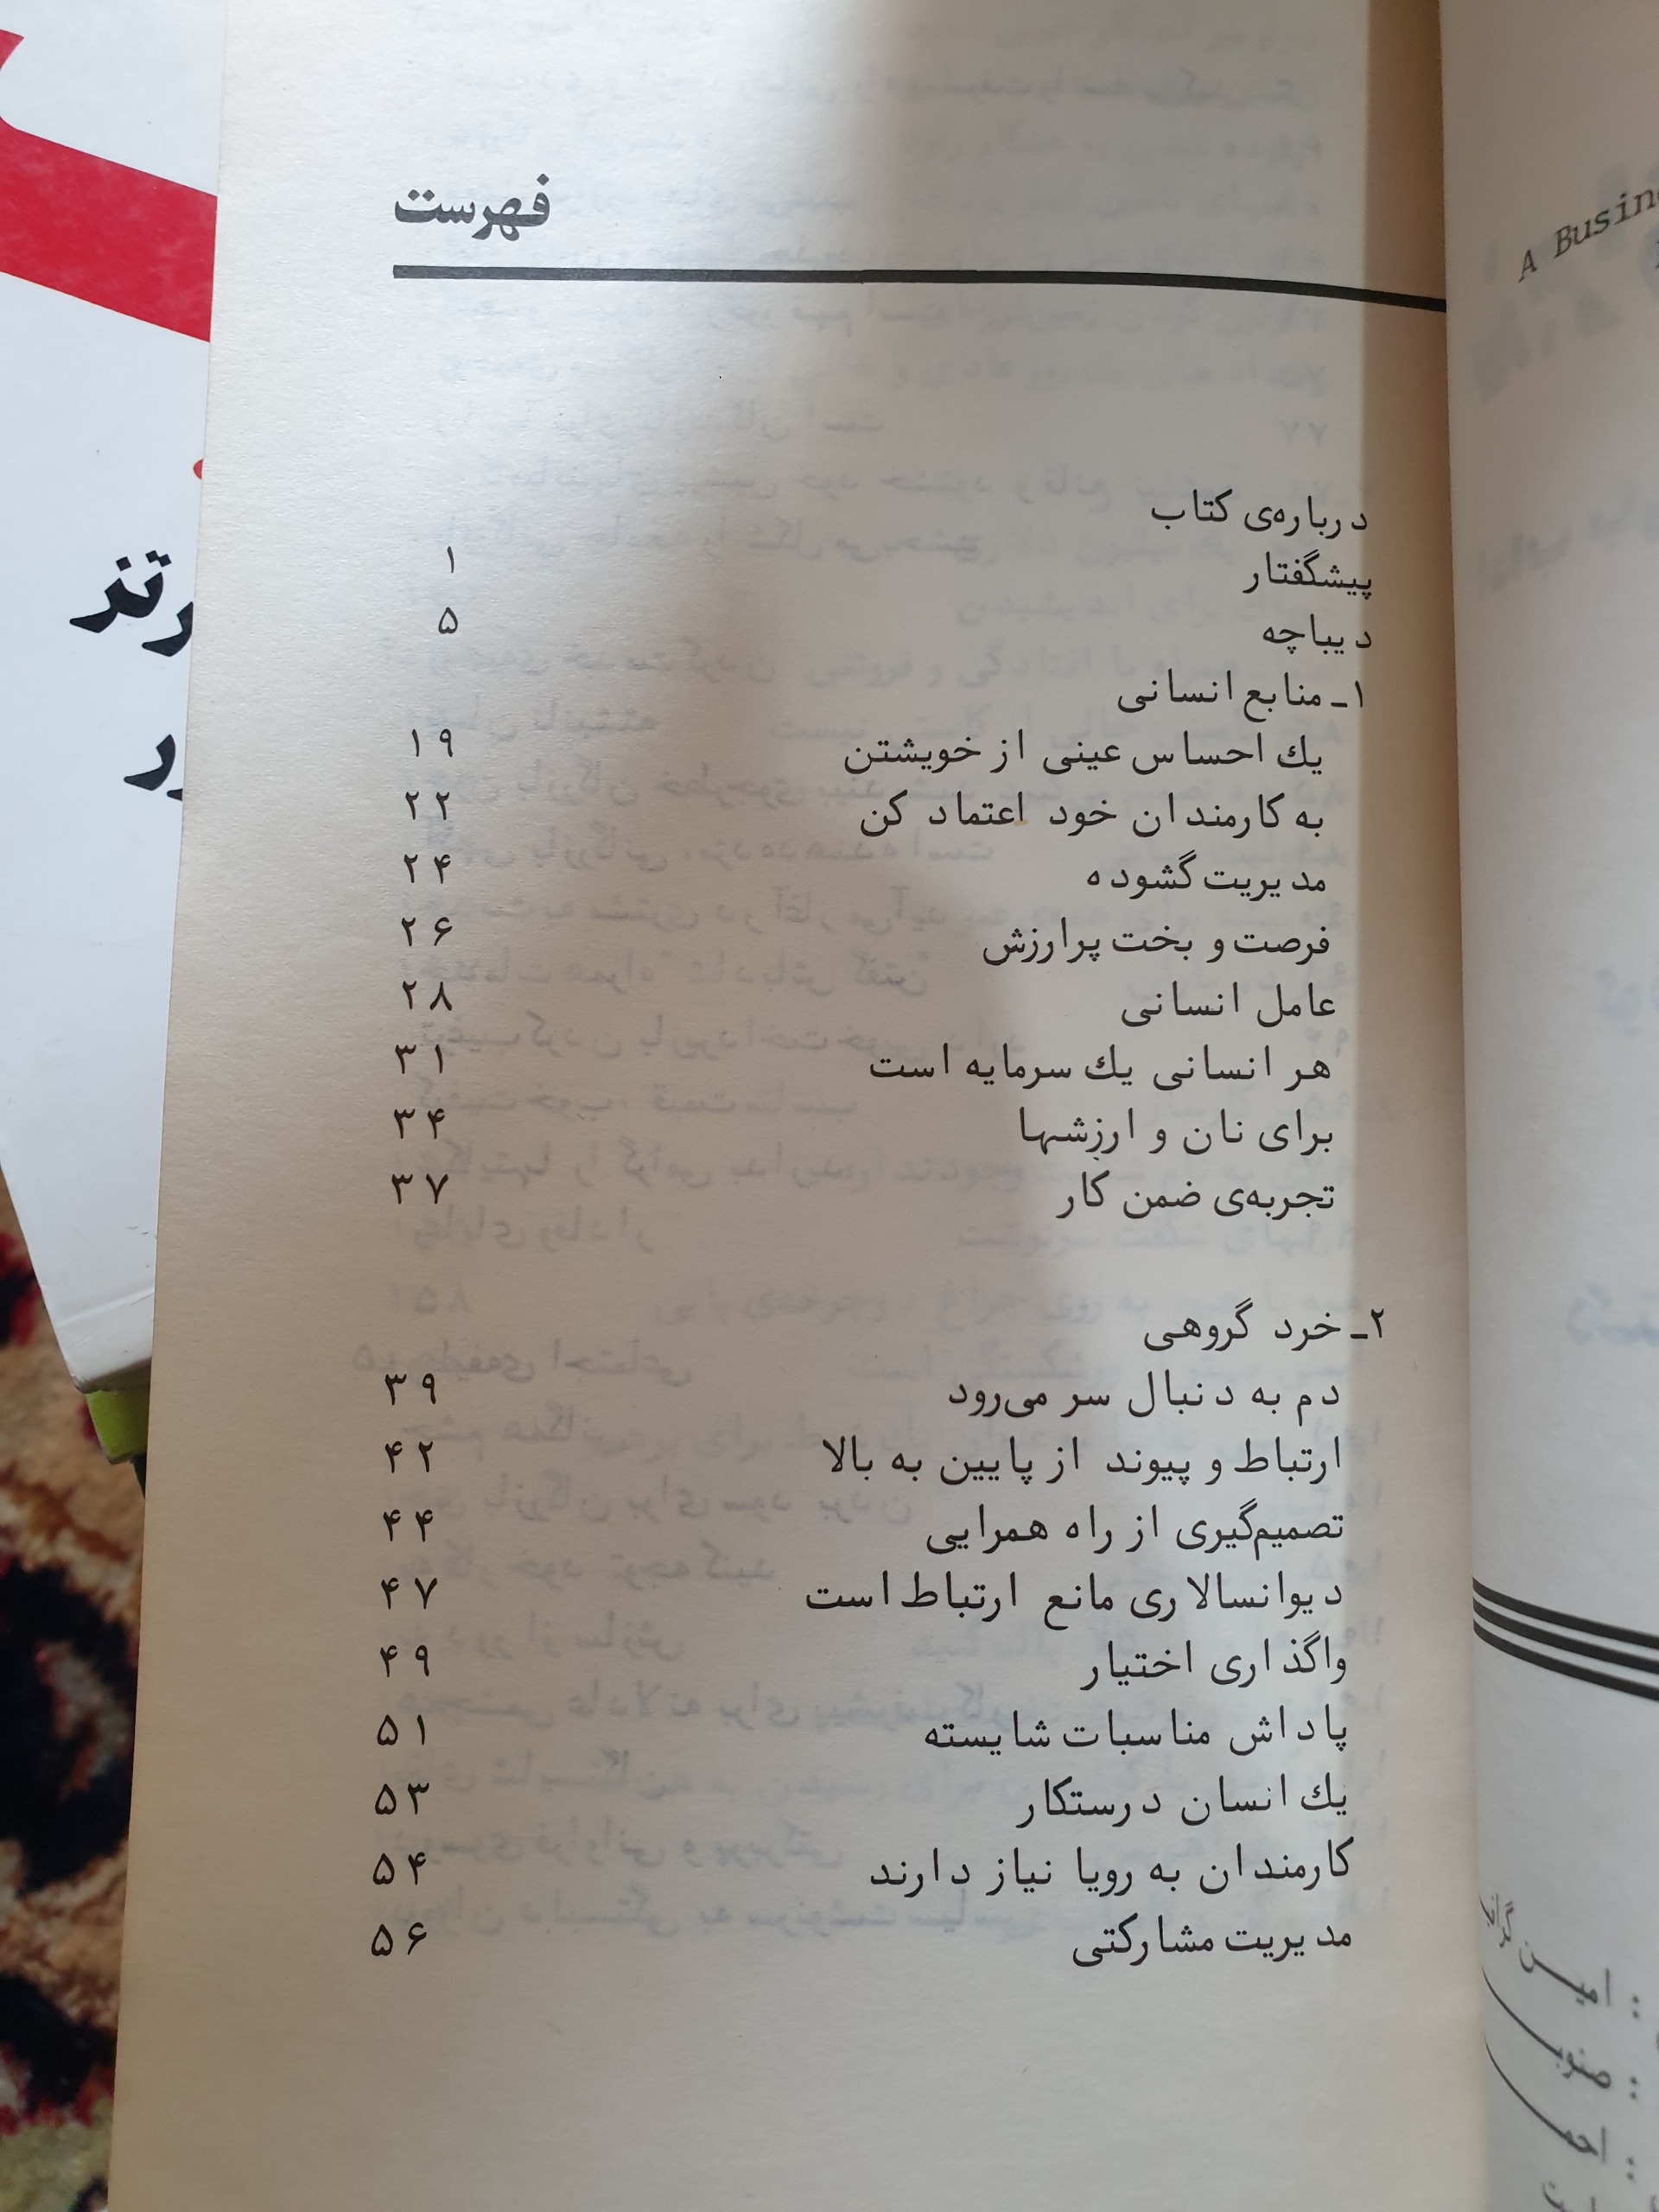 فهرست
درباره‌ی کتاب
پیشگفتار ۱
دیباچه ۵
۱ـ منابع انسانی
یك احساس عینی از خویشتن ۱۹
به کارمندان خود اعتماد کن ۲۲
مدیریت گشوده ۲۴
فرصت و بخت پرارزش ۲۶
عامل انسانی ۲۸
هر انسانی یك سرمایه است ۳۱
برای نان و ارزشها ۳۴
تجربه‌ی ضمن کار ۳۷
۲ـ خرد گروهی
دم به دنبال سر می‌رود ۳۹
ارتباط و پیوند از پایین به بالا ۴۲
تصمیم‌گیری از راه همرایی ۴۴
دیوانسالاری مانع ارتباط است ۴۷
واگذاری اختیار ۴۹
پاداش مناسبات شایسته ۵۱
یك انسان درستکار ۵۳
کارمندان به رویا نیاز دارند ۵۴
مدیریت مشارکتی ۵۶
A